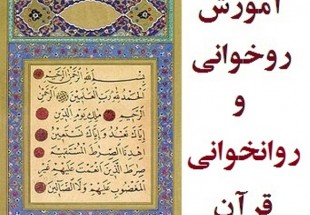 آموزش
روخوانی
و
روانخوانی
قرآن
بسم الله الرحمن الرحیم
الحمد لله رب العالمین الرحمن
الرحیم ملک یوم الدین
ایاک نعبد و ایاک نستعین
اهدنا الصراط المستقیم
صراط الذین انعمت علیهم غیر
المغضوب علیهم ولا الضالین